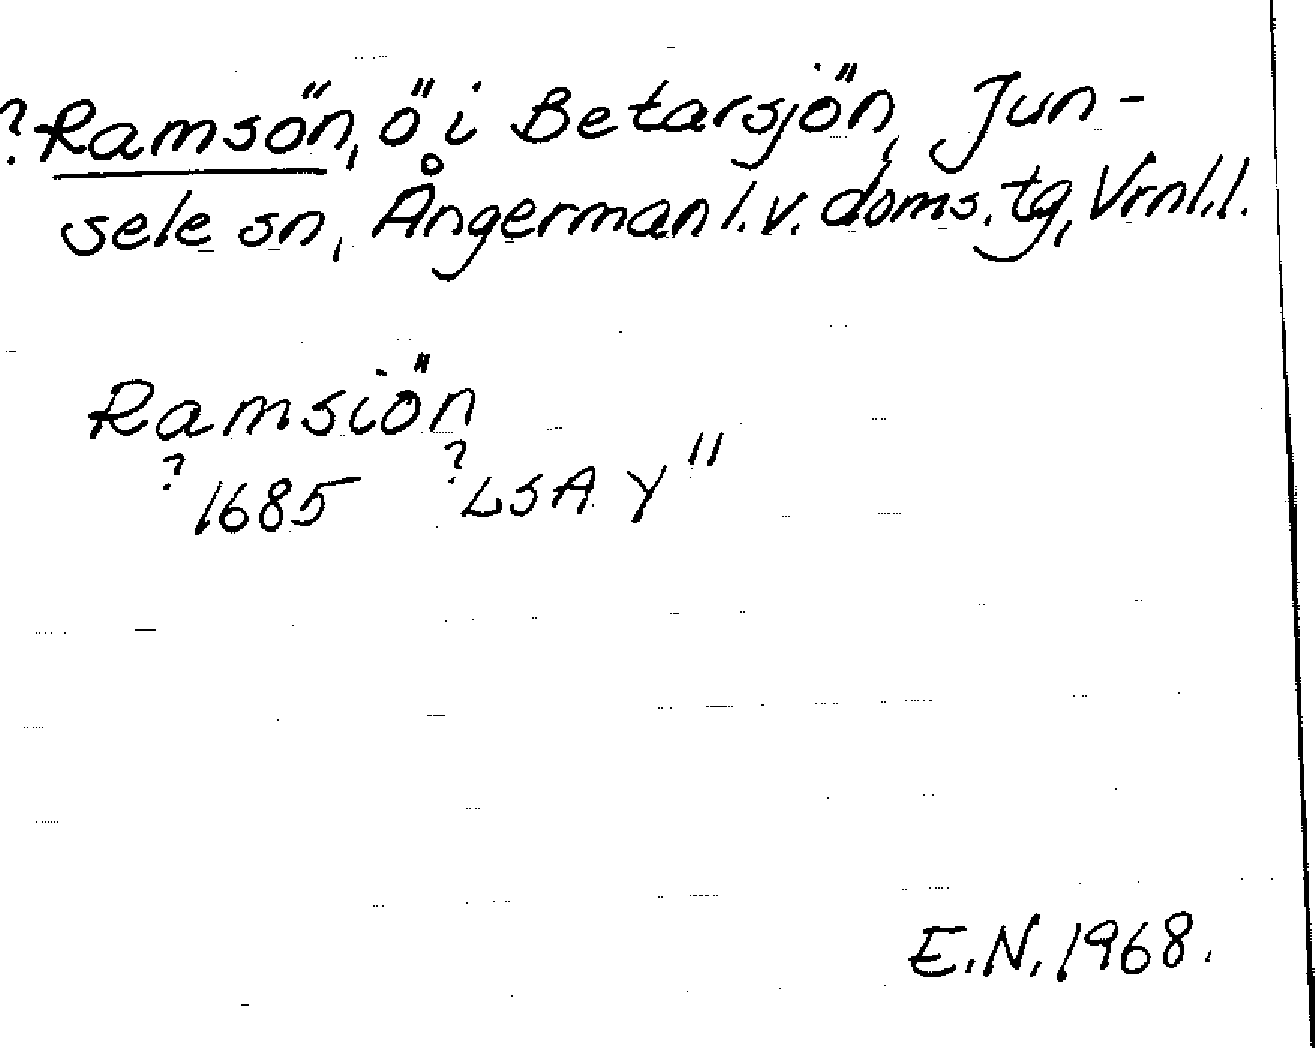 ?Ramsön, ö i Betarsjön, Jun-
sele sn, Ångermanl.v. doms.tg, Vrnl.l.
Ramsiön
?1685 ?LSA Y"
E.N. 1968.